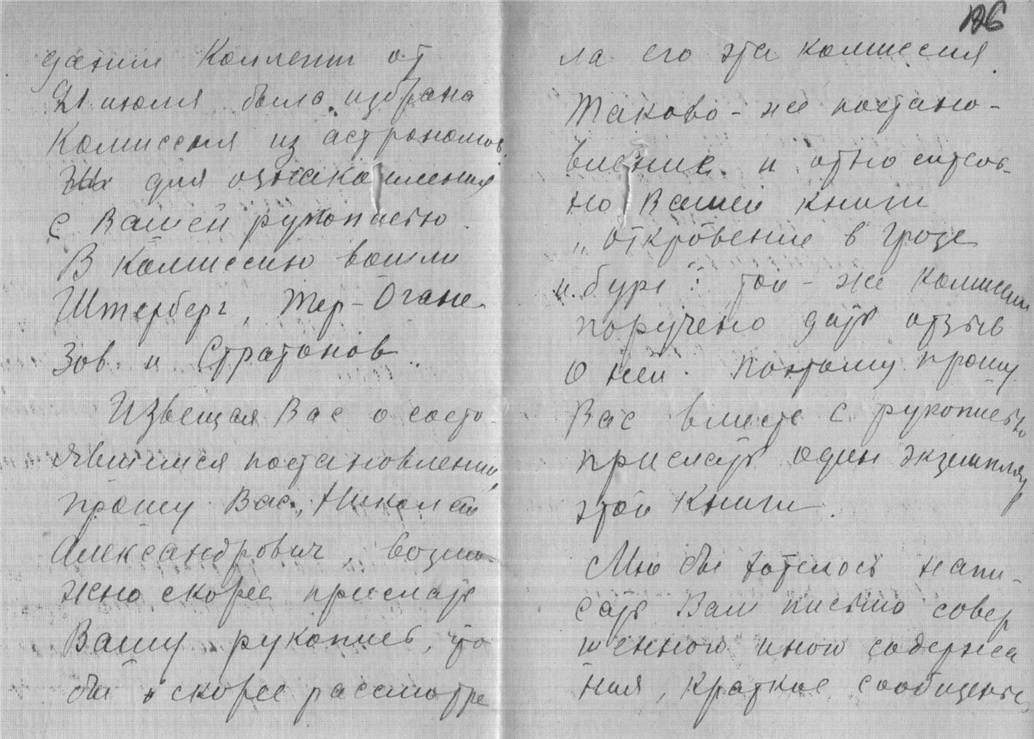 дании Коллегии от
21 июля была избрана
Комиссия из астрономов
для ознакомления
с Вашей рукописью.
В комиссию вошли
Штерберг, Тер-Огане-
зов и Стратонов.
Извещая Вас о состо-
явшемся постановлении,
прошу Вас, Николай
Александрович, возмо-
жно скорее прислать
Вашу рукопись, что
бы скорее рассмотре
126
ла его эта комиссия.
Таково-же постано-
вление и относитель-
но Вашей книги
„откровение в грозе
и буре": той-же комиссии
поручено дать отзыв
о ней. Поэтому прошу
Вас вместе с рукописью
прислать один экземпляр
этой книги.
Мне бы хотелось напи-
сать Вам письмо совер
шенного иного содержа
ния, краткое сообщение,